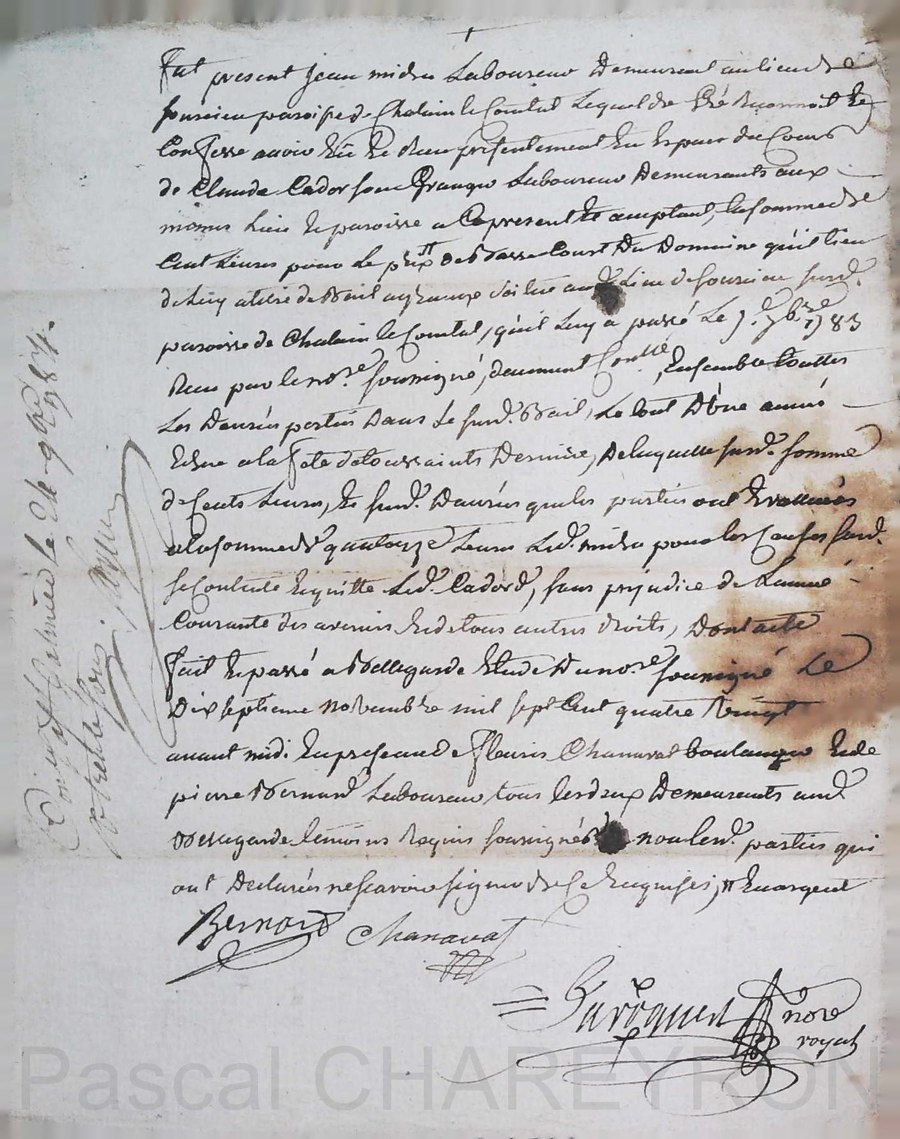 Fut present Jean midru Laboureur Demeurant au lieu de
fourieu paroisse de Chalain le Comtal Lequel de gré Reconnoit Et
Confesse avoir Eû Et Reçu présentement En Espaces de Cours
de Claude Cador fermier Laboureur Demeurants aux
mêmes Lieu Et paroisse a Ce present Et acceptant, la somme de
Cent Livres pour Le prix de Basse Court Du Domaine qu'il tien
de Luy a titre de Bail situé au Lieu de fourieu susd.
paroisse de Chalain le Comtal, qu'il Luy a passé Le 7bre 1783
Reçu par le nore soussigné, deument Contllé, Ensemble touttes
Les Denrées portées Dans Le susd. Bail, Le tout D'une année
Echue a la fete de toussaints Derniere, De laquelle susd. somme
de Cents Livres, Et susd. Danrées que les parties ont Evaluées
a la somme de quatorze Livres Led. midru pour les Causes susd.
se Contente Et quitte Led. Cador, sans prejudice de L'année
Courante des avenirs Et de tous autres droits, Dont acte
fait Et passé a Bellegarde Etude Du nore soussigné Le
Dix septieme novembre mil sept Cent quatre Vingt
avant midi En presence de fleuris Chanavat boulanger Et de
pierre Bernard Laboureur tous les deux Demeurants aud.
Bellegarde temoins Requis soussignés non lesd. parties qui
ont Declarés ne scavoir signer de Ce Enquises, En argent
Bernard Chanavat
nore
royal
Conté a St Galmier le 24 9bre 1784.
Pascal CHAREYRON